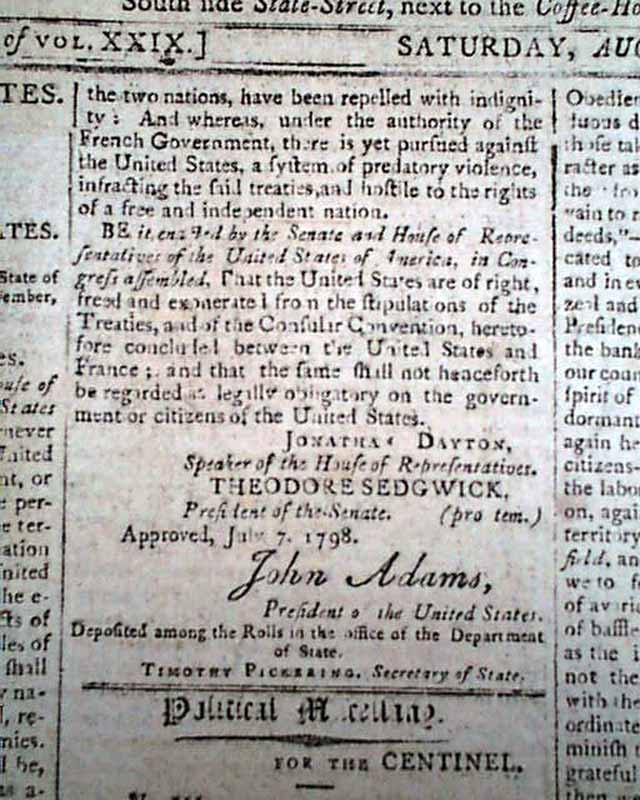 South side State-Street, next to the Coffee-Ho
of VOL. XXIX.]
SATURDAY, AUG
TES.
ATES.
State of
ember,
es.
ouse of
States
never
nited
nt, or
e per-
e ter-
ation
nited
he e-
cts of
les of
shall
y na-
l, re-
mies.
l be,
s a-
the two nations, have been repelled with indigni-
ty: And whereas, under the authority of the
French Government, there is yet pursued against
the United States, a system of predatory violence,
infracting the said treaties, and hostile to the rights
of a free and independent nation.
BE it enacted by the Senate and House of Repre-
sentatives of the United States of America, in Con-
gress assembled, That the United States are of right,
freed and exonerated from the stipulations of the
Treaties, and of the Consular Convention, hereto-
fore concluded between the United States and
France; and that the same shall not henceforth
be regarded as legally obligatory on the govern-
ment or citizens of the United States.
JONATHAN DAYTON,
Speaker of the House of Representatives.
THEODORE SEDGWICK,
President of the Senate. (pro tem.)
Approved, July 7. 1798.
John Adams,
President of the United States.
Deposited among the Rolls in the office of the Department
of State.
TIMOTHY PICKERING, Secretary of State.
Political Miscellany.
FOR THE CENTINEL.
Obedien
those tal
racter as
the
vain to r
deeds,"—
cated to
and in ev
zeal and
Presiden
the bank
our coun
spirit of
dormant
again he
citizens-
the labo
on, agai
territory
field, an
we to f
of avari
of baffle
as the i
not the
with the
ordinate
minish t
grateful
then w